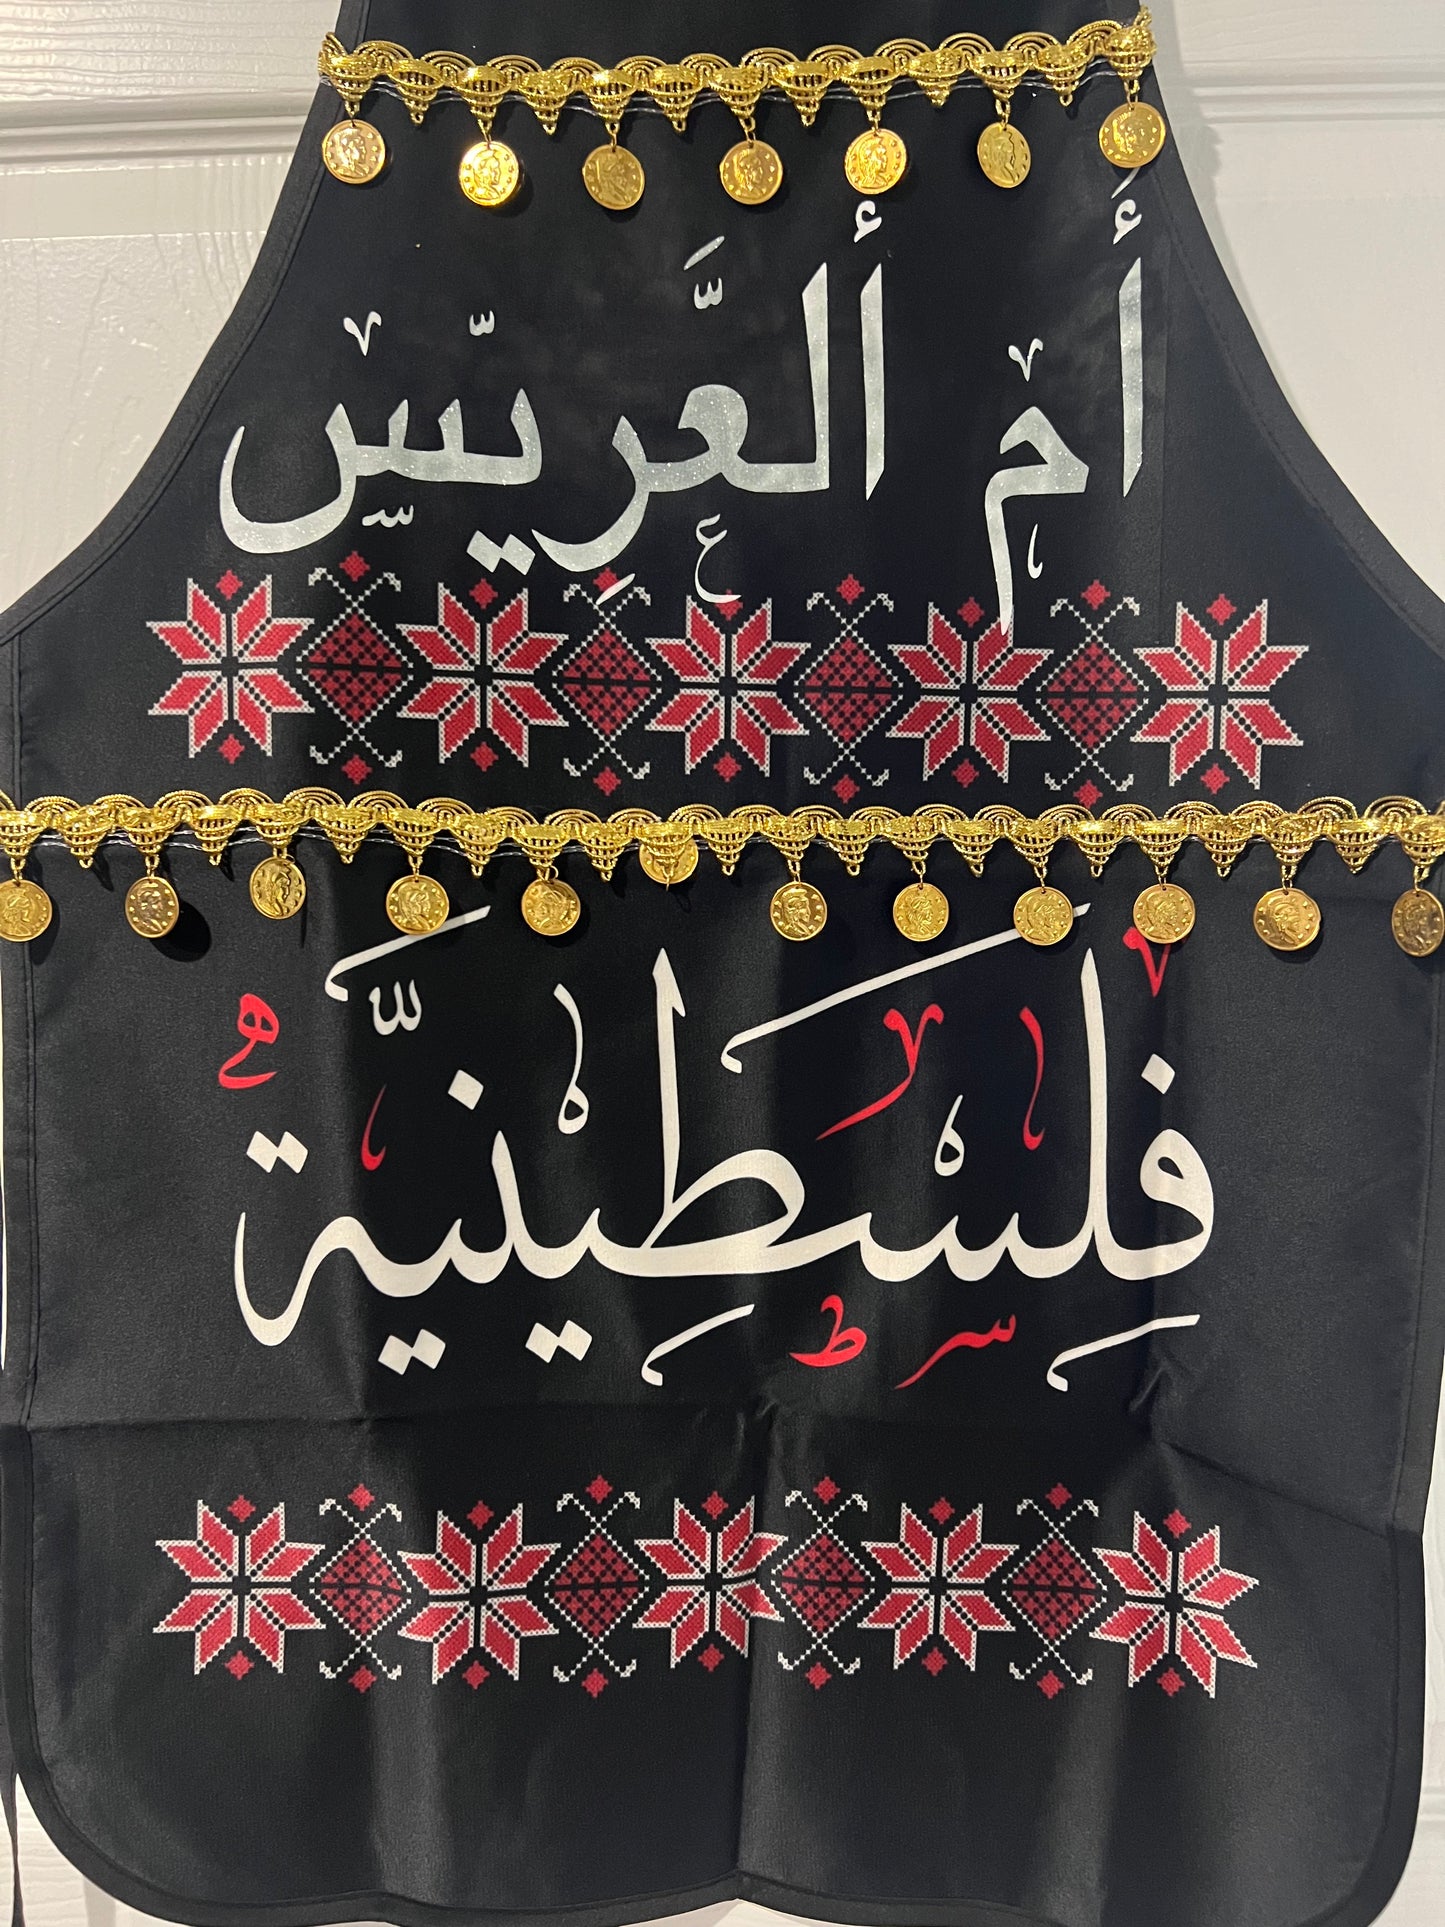 أم ألعريس
فلسطينية